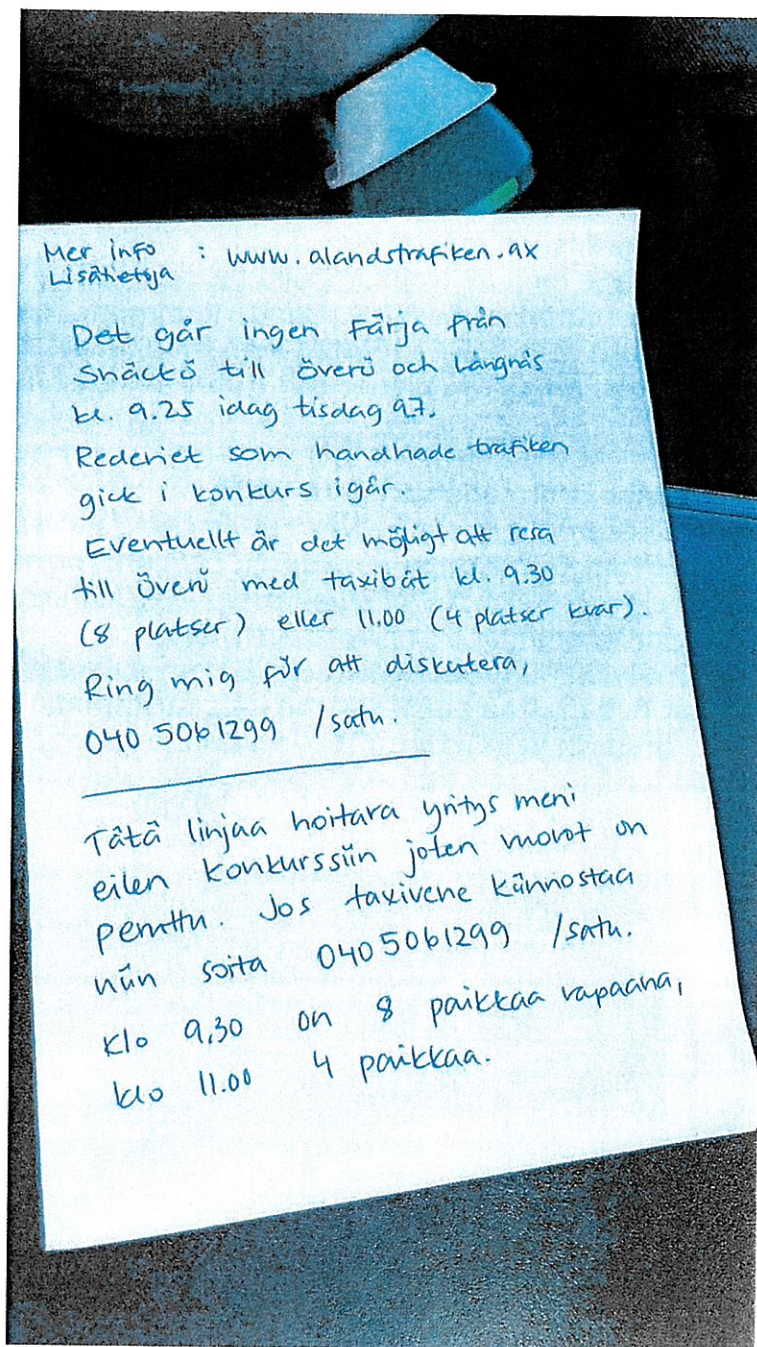 Mer info : www.alandstrafiken.ax
Lisätietoja
Det går ingen färja från
Snäckö till överö och Långnäs
kl. 9.25 idag tisdag 9.7.
Rederiet som handhade trafiken
gick i konkurs igår.
Eventuellt är det möjligt att resa
till överö med taxibåt kl. 9.30
(8 platser) eller 11.00 (4 platser kvar).
Ring mig för att diskutera,
040 5061299 /satu.
Tätä linjaa hoitava yritys meni
eilen konkurssiin joten vuorot on
peruttu. Jos taxivene kiinnostaa
niin soita 040 5061299 /satu.
Klo 9,30 on 8 paikkaa vapaana,
klo 11.00 4 paikkaa.